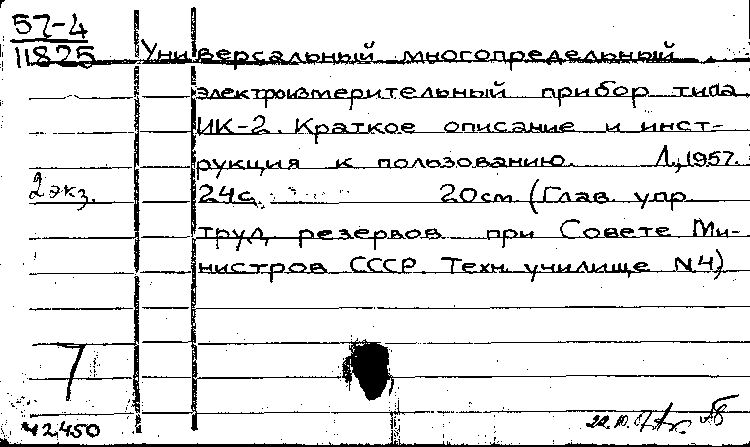 57-4
11825
Универсальный многопредельный
электроизмерительный прибор типа
ИК-2. Краткое описание и инст-
рукция к пользованию. Л., 1957.
2 экз.
24с. 20см (Глав. упр.
труд. резервов при Совете Ми-
нистров СССР. Техн. училище N4)
7
42450